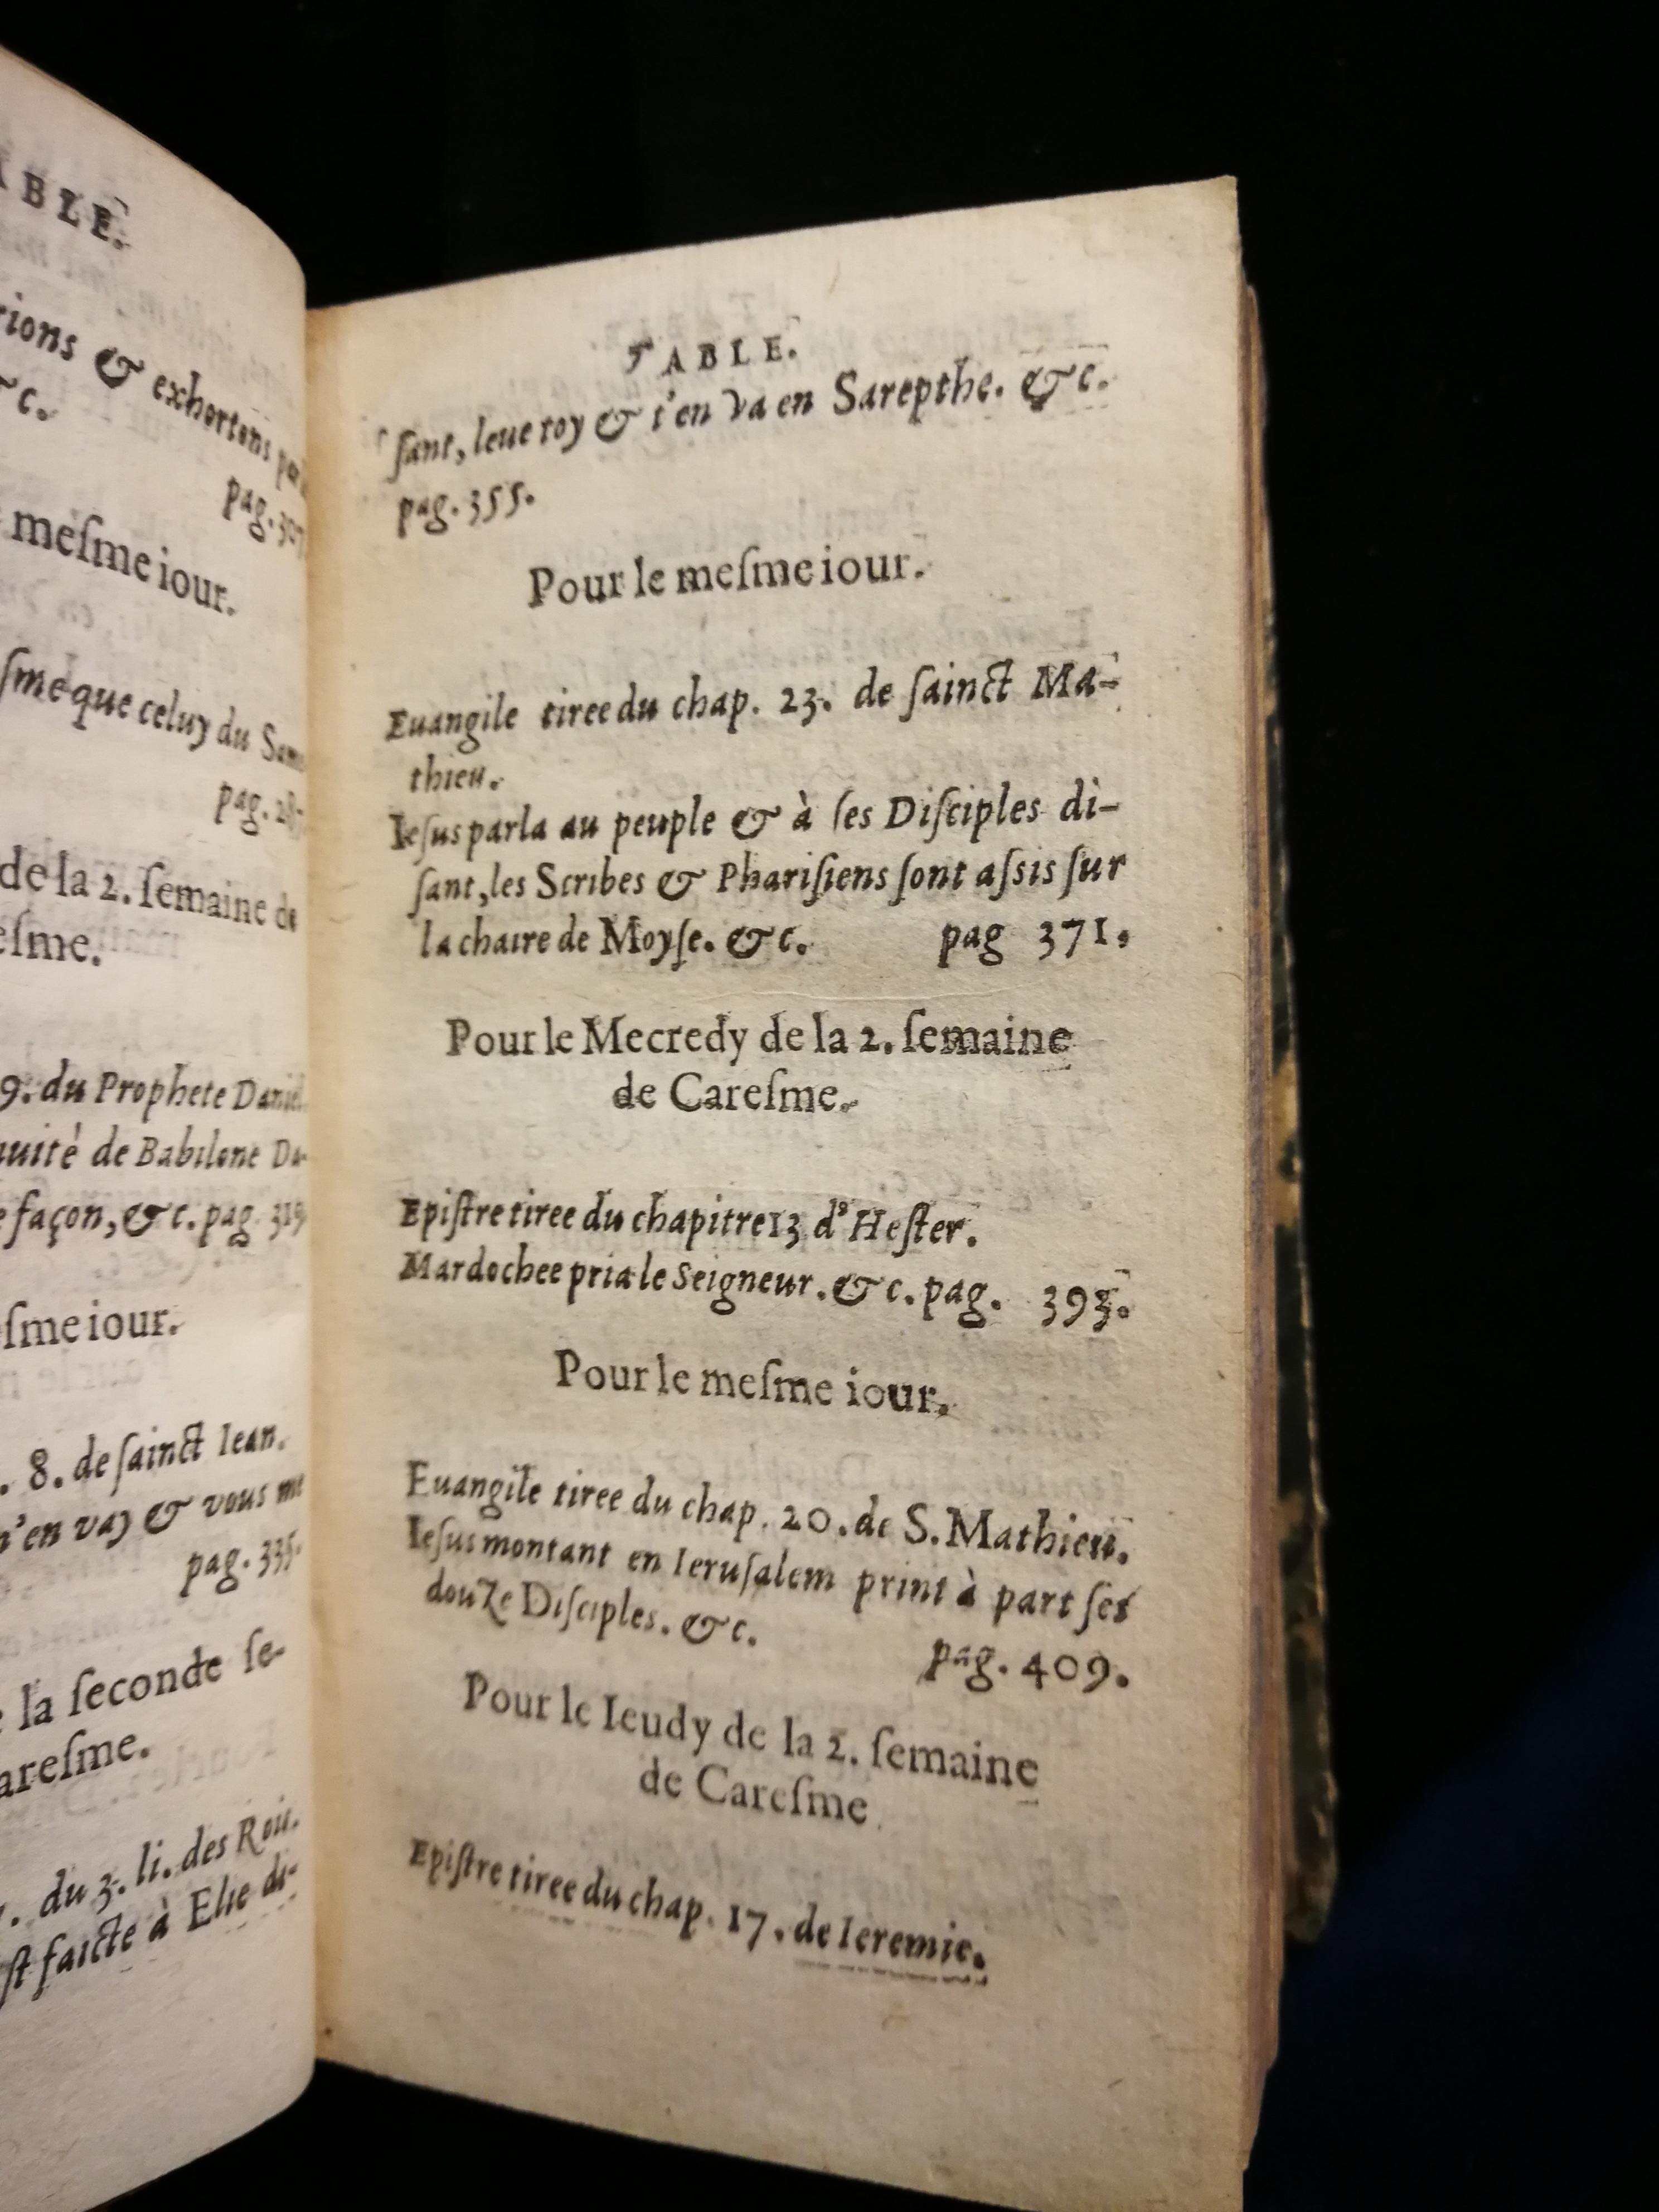 ABLE.
rions & exhortons
&c.
pag. 307
mesme iour.
sme que celuy du
pag.
de la 2. semaine de
esme.
9. du Prophete Daniel
uité de Babilone Da-
e façon, &c. pag. 319
sme iour.
. 8. de sainct Iean.
m'en vay & vous me
pag. 335.
la seconde se-
aresme.
. du 3. li. des Rois.
st faicte à Elie di-
TABLE.
sant, leue toy & t'en va en Sarepthe. &c.
pag. 355.
Pour le mesme iour.
Euangile tiree du chap. 23. de sainct Ma-
thieu.
Iesus parla au peuple & à ses Disciples di-
sant, les Scribes & Pharisiens sont assis sur
la chaire de Moyse. &c. pag 371.
Pour le Mecredy de la 2. semaine
de Caresme.
Epistre tiree du chapitre 13 d'Hester.
Mardochee pria le Seigneur. &c. pag. 393.
Pour le mesme iour.
Euangile tiree du chap. 20. de S. Mathieu.
Iesus montant en Ierusalem print à part ses
douze Disciples. &c.
pag. 409.
Pour le Ieudy de la 2. semaine
de Caresme
Epistre tiree du chap. 17. de Ieremie.